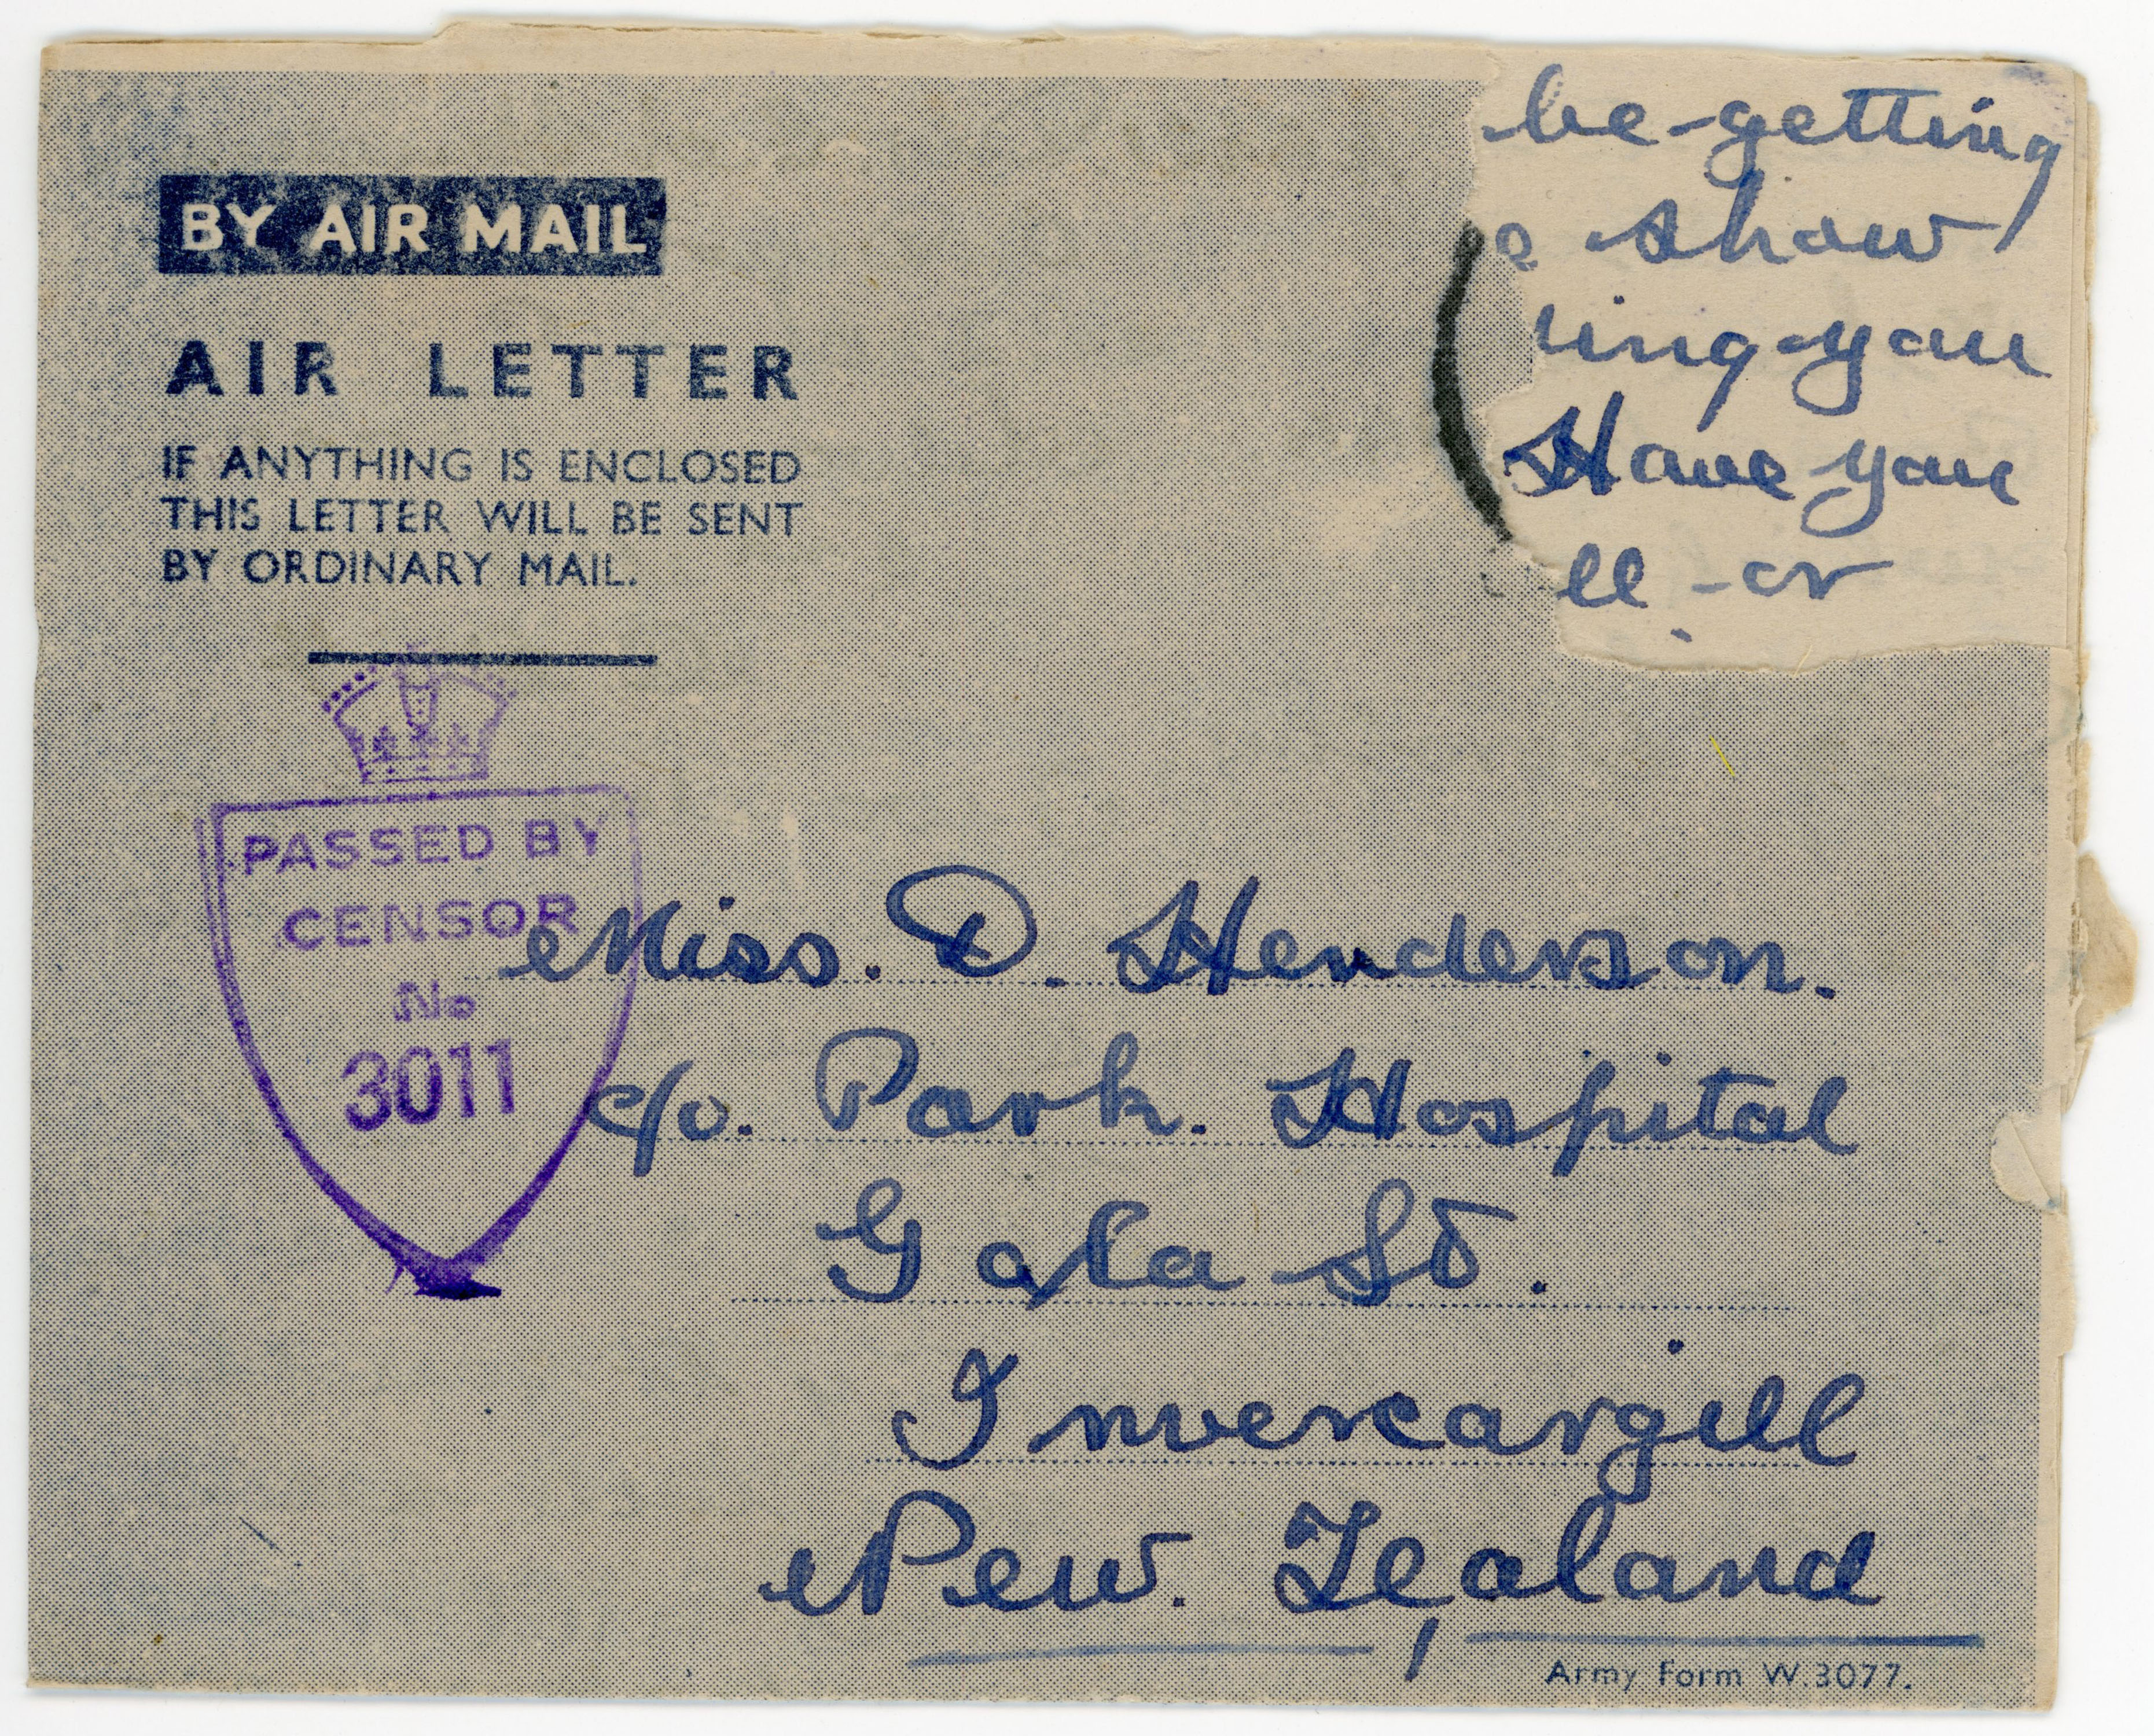 BY AIR MAIL
AIR LETTER
IF ANYTHING IS ENCLOSED
THIS LETTER WILL BE SENT
BY ORDINARY MAIL.
be getting
show
ing you
Have you
ll - or
PASSED BY
CENSOR
No
3011
Miss. D. Henderson.
c/o. Park. Hospital
Gala St.
Invercargill
New. Zealand
Army Form W.3077.